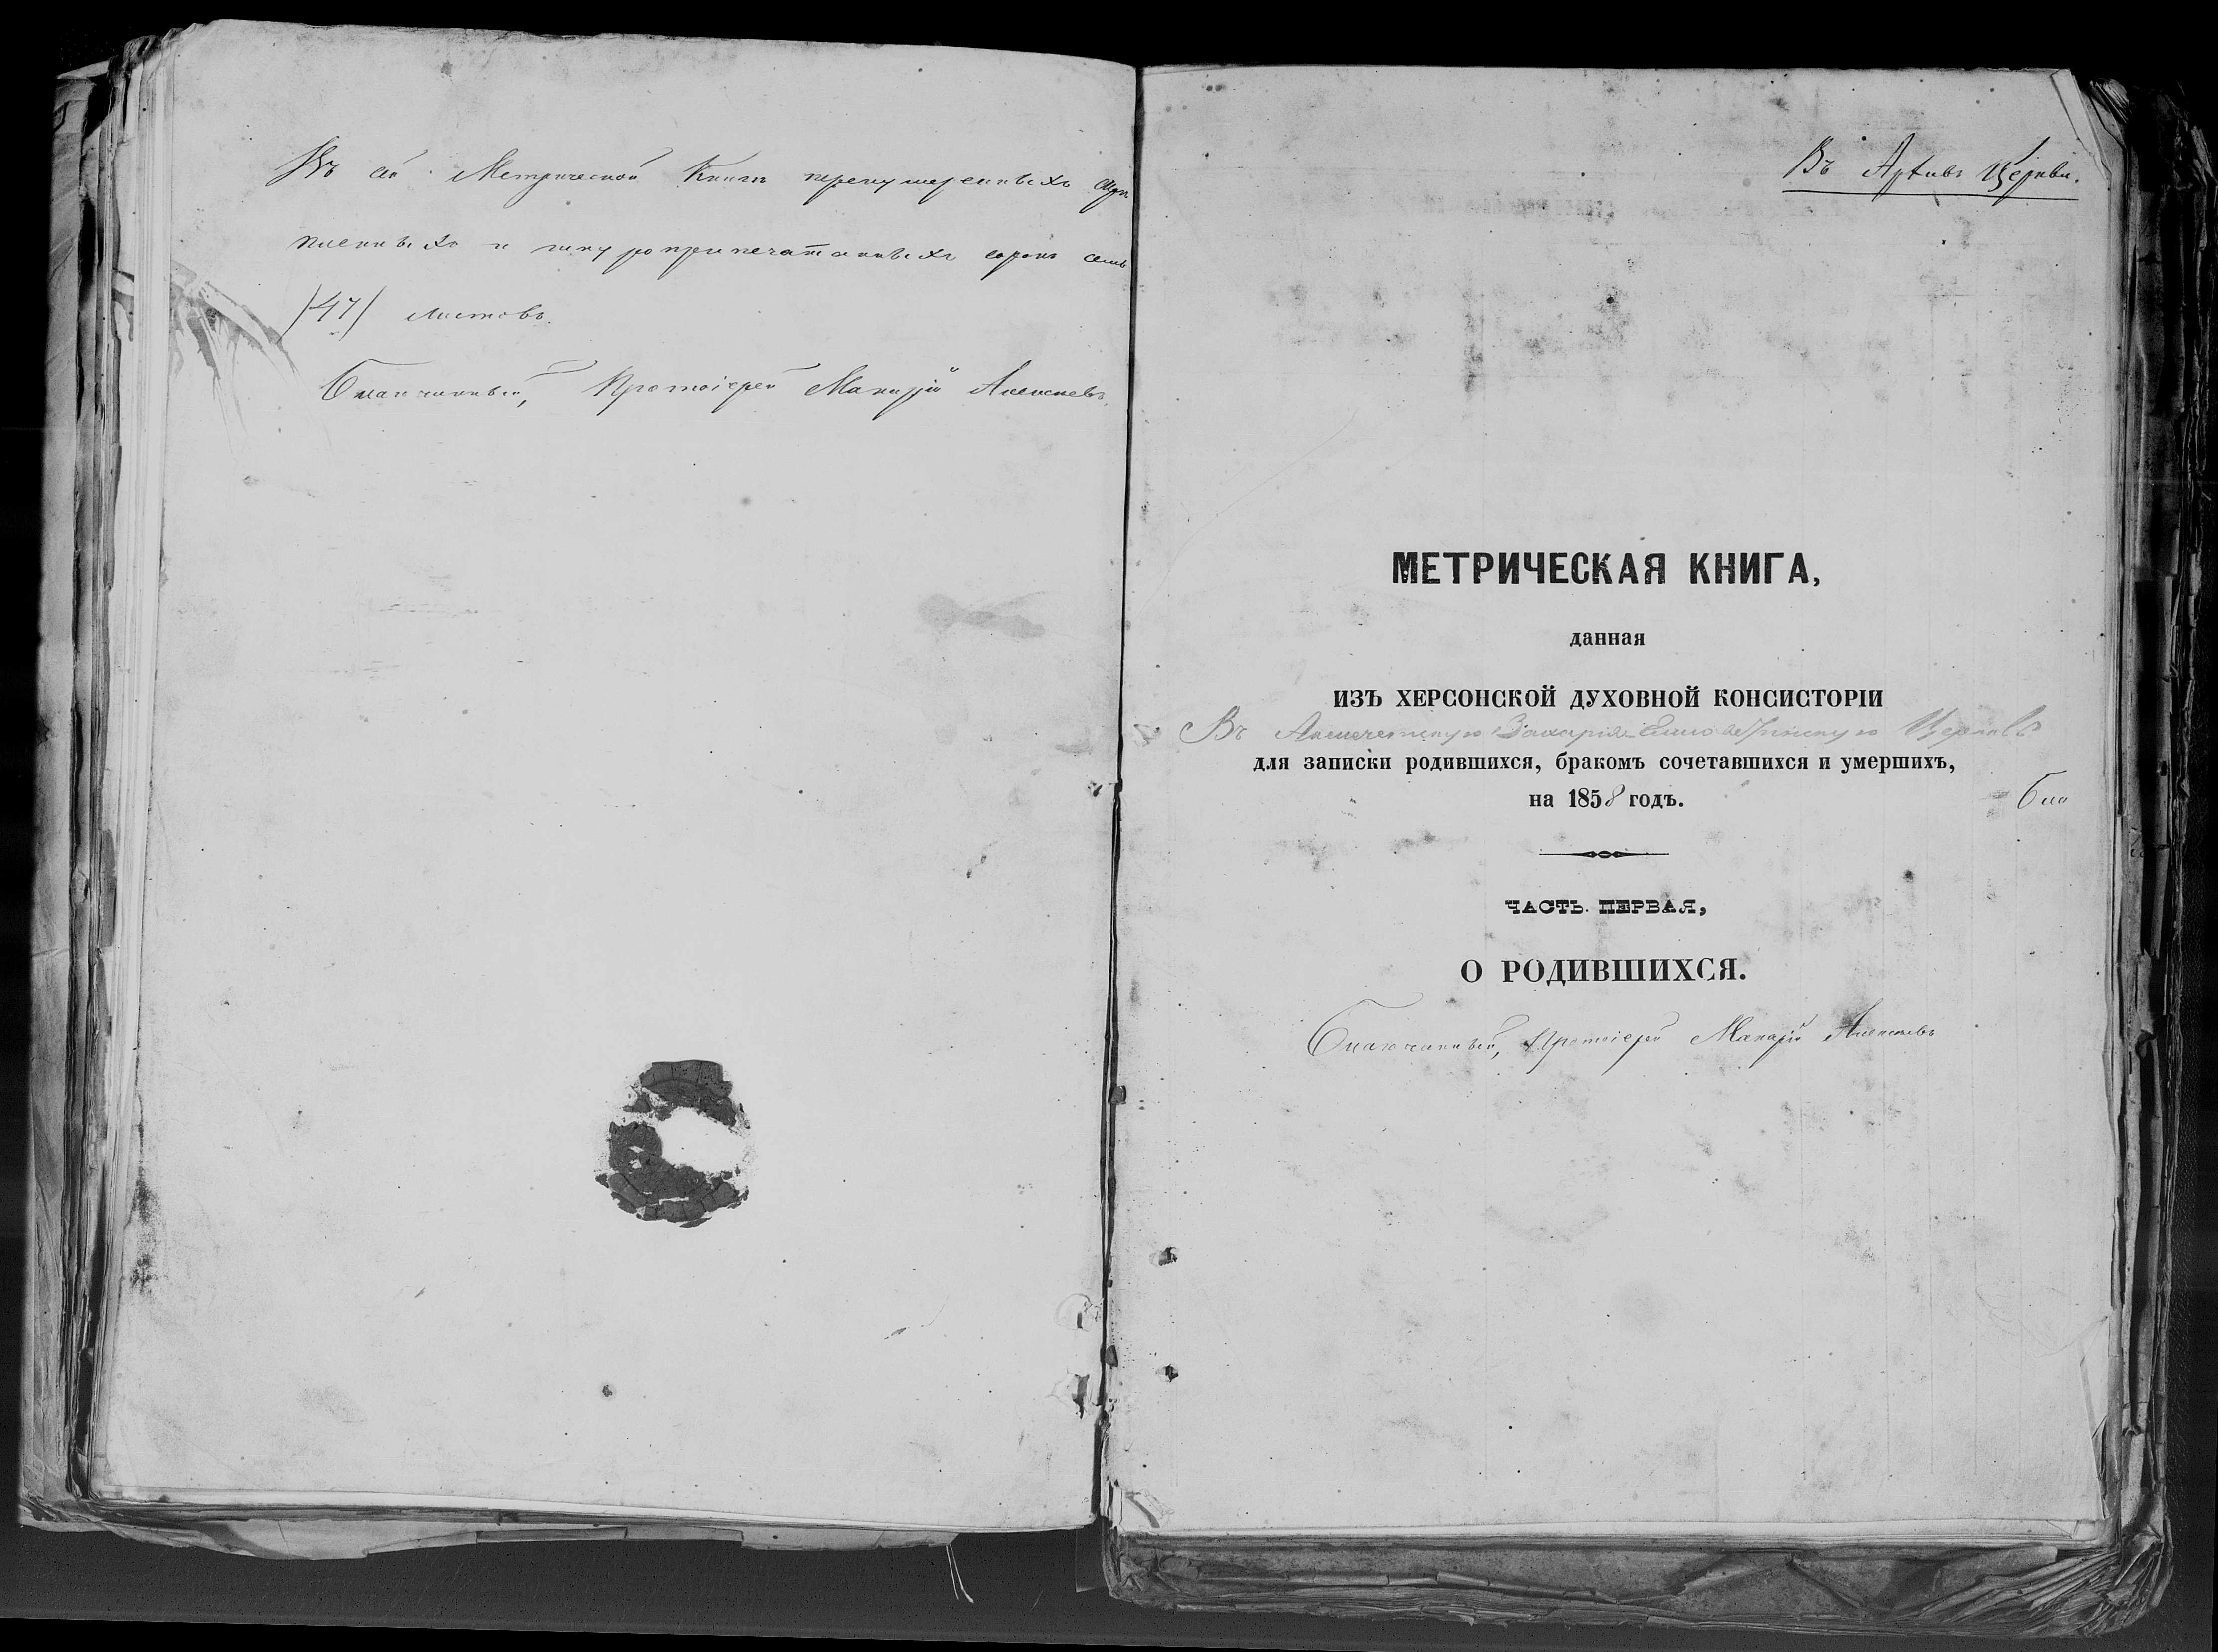 Въ сей Метрической Книгѣ перенумерованныхъ
и шнуроприпечатанныхъ сорокъ семь
/47/ листовъ.
Благочинный, Протоіерей Макарій Алексѣевъ
Въ Архивъ Церкви.
МЕТРИЧЕСКАЯ КНИГА,
данная
ИЗЪ ХЕРСОНСКОЙ ДУХОВНОЙ КОНСИСТОРІИ
Въ Захаріе-Елисаветинскую Церковь
для записки родившихся, бракомъ сочетавшихся и умершихъ,
на 1858 годъ.
ЧАСТЬ ПЕРВАЯ,
О РОДИВШИХСЯ.
Благочинный, Протоіерей Макарій Алексѣевъ